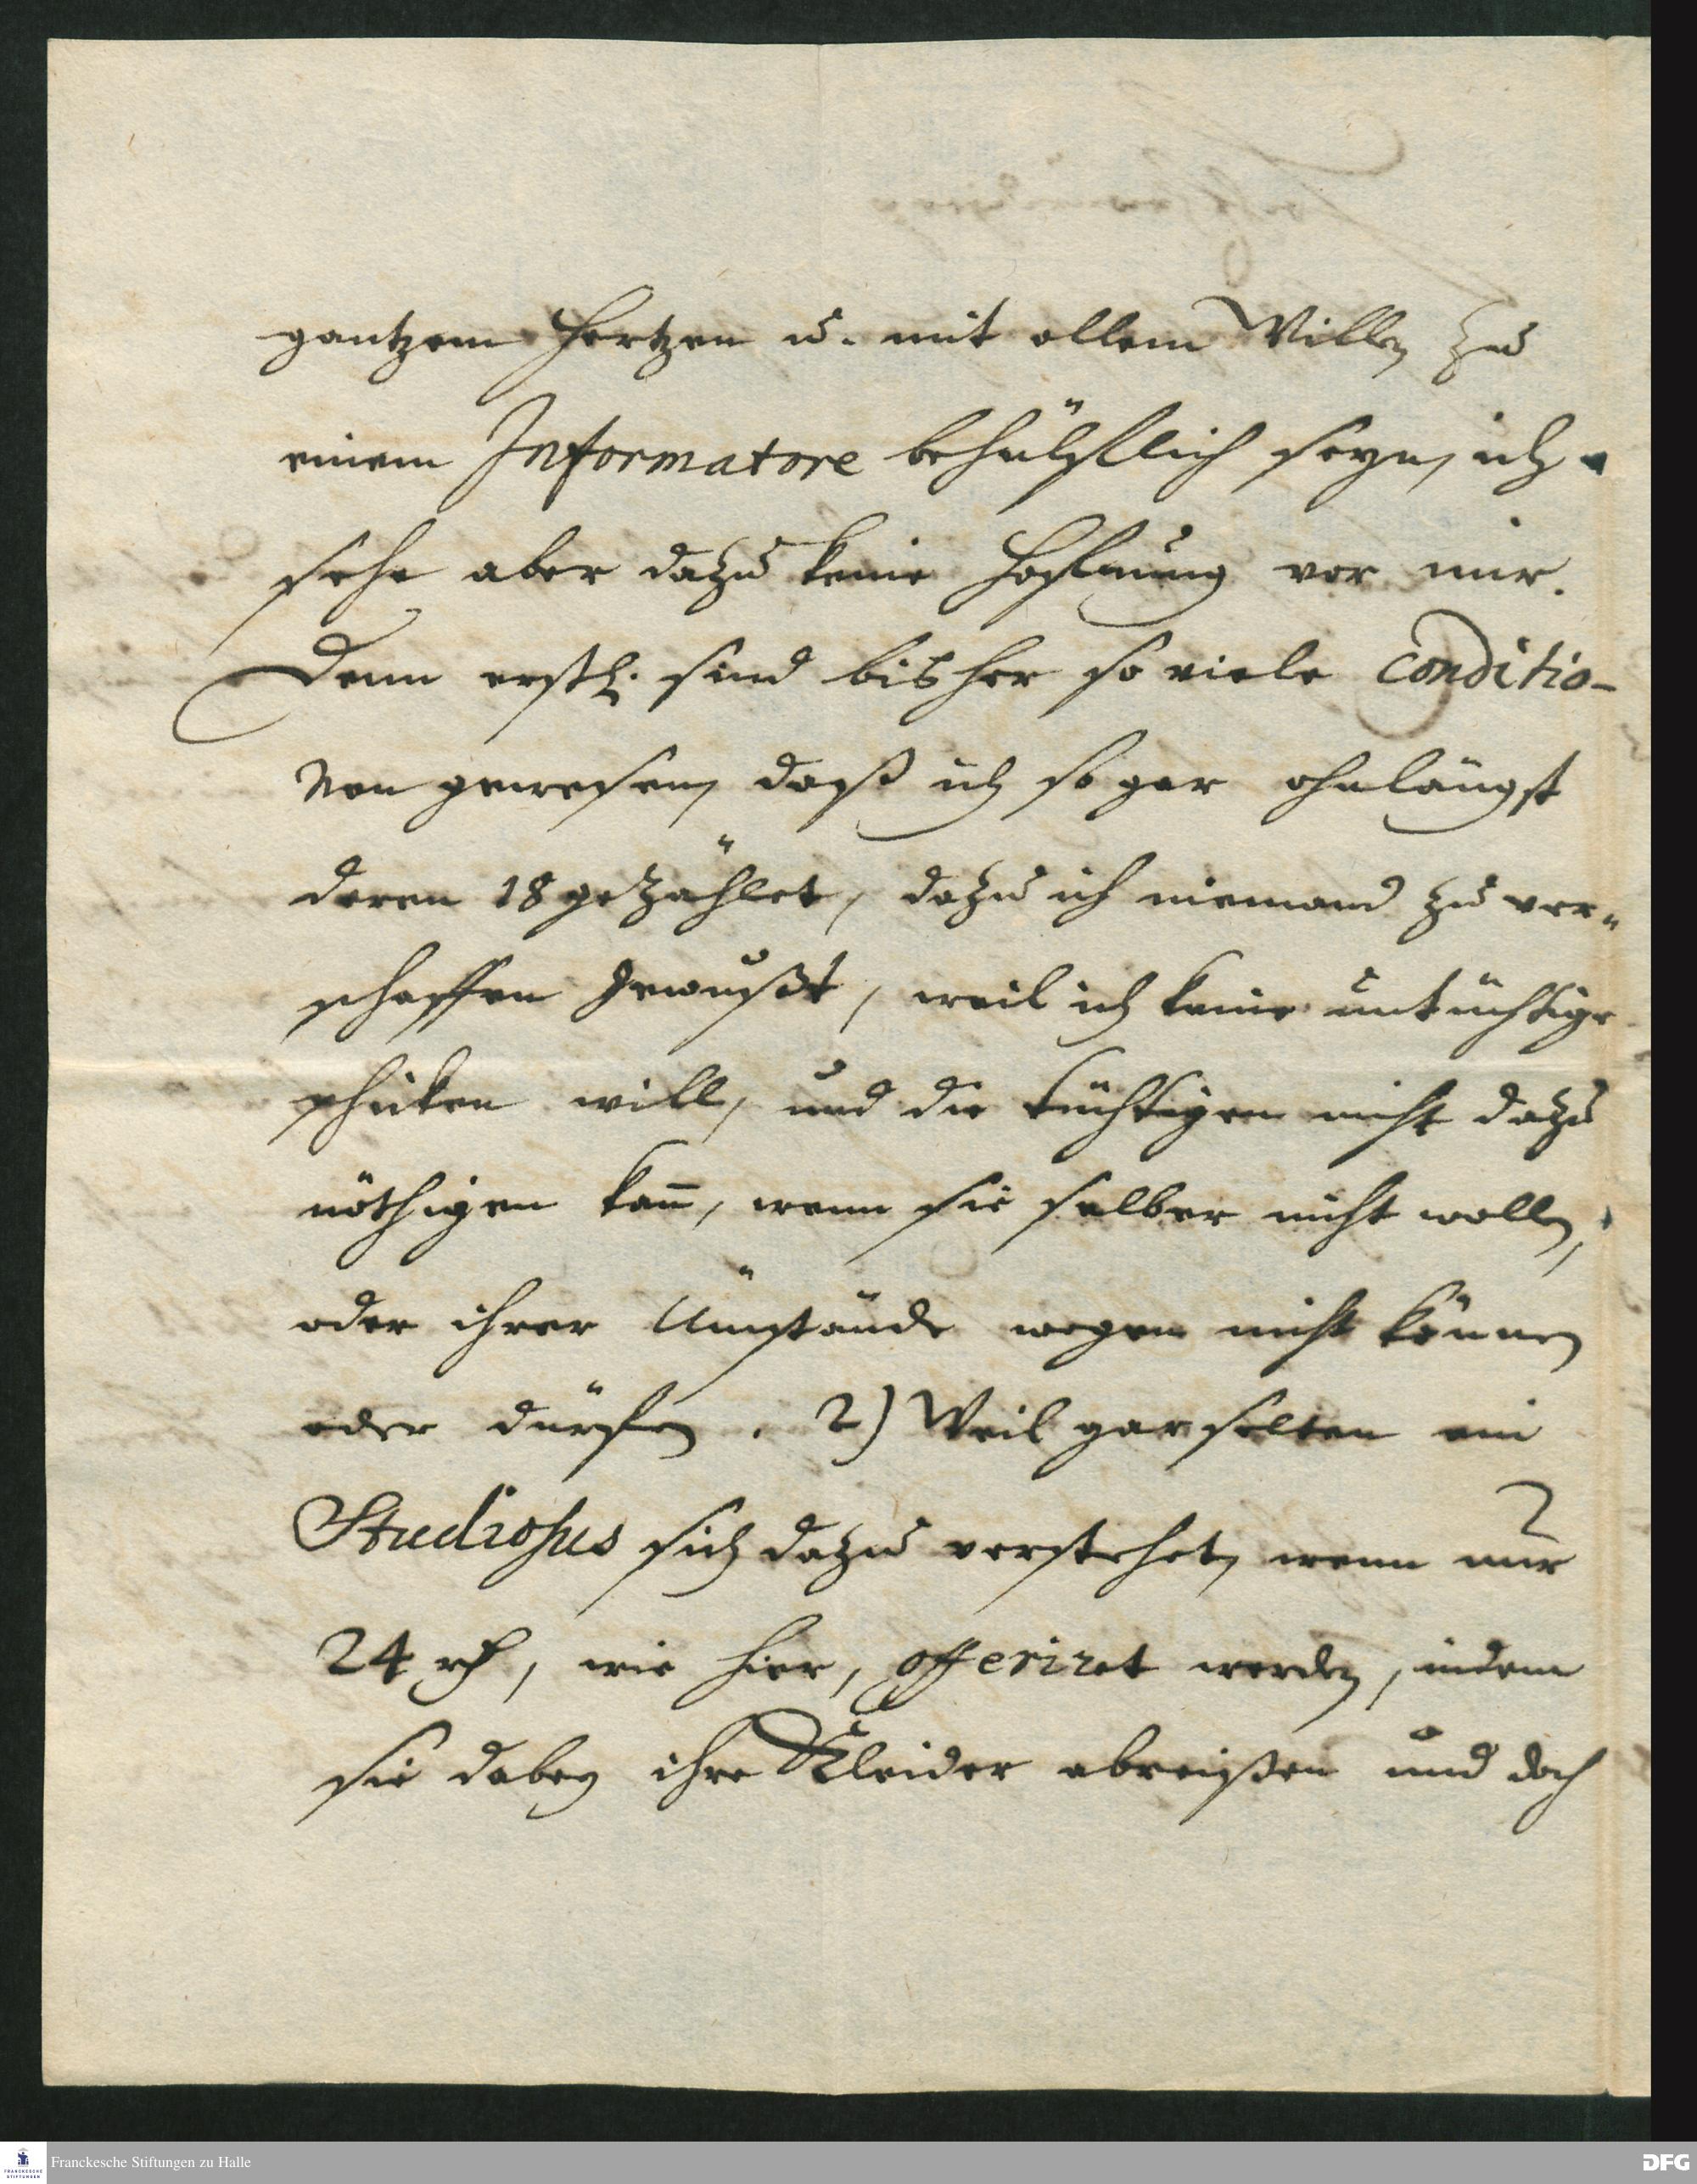 gantzem Hertzen u. mit allem Willen zu
einem Informatore behülfflich seyn, ich
sehe aber dazu keine Hoffnung vor mir.
Denn erstl. sind bisher so viele Conditio-
nen gewesen, daß ich so gar ohnlängst
deren 18 gezählet, dazu ich niemand zu ver-
schaffen gewußt, weil ich keine untüchtige
schicken will, und die tüchtigen nicht dazu
nöthigen kan̅, wenn sie selber nicht wollen,
oder ihrer Umstände wegen nicht können
oder dürfen. 2) Weil gar selten ein
Studiosus sich dazu verstehet, wenn nur
24 rth, wie hier, offeriret werden, indem
sie dabey ihre Kleider abreißen und doch
Franckesche Stiftungen zu Halle
FRANCKESCHE
STIFTUNGEN
DFG